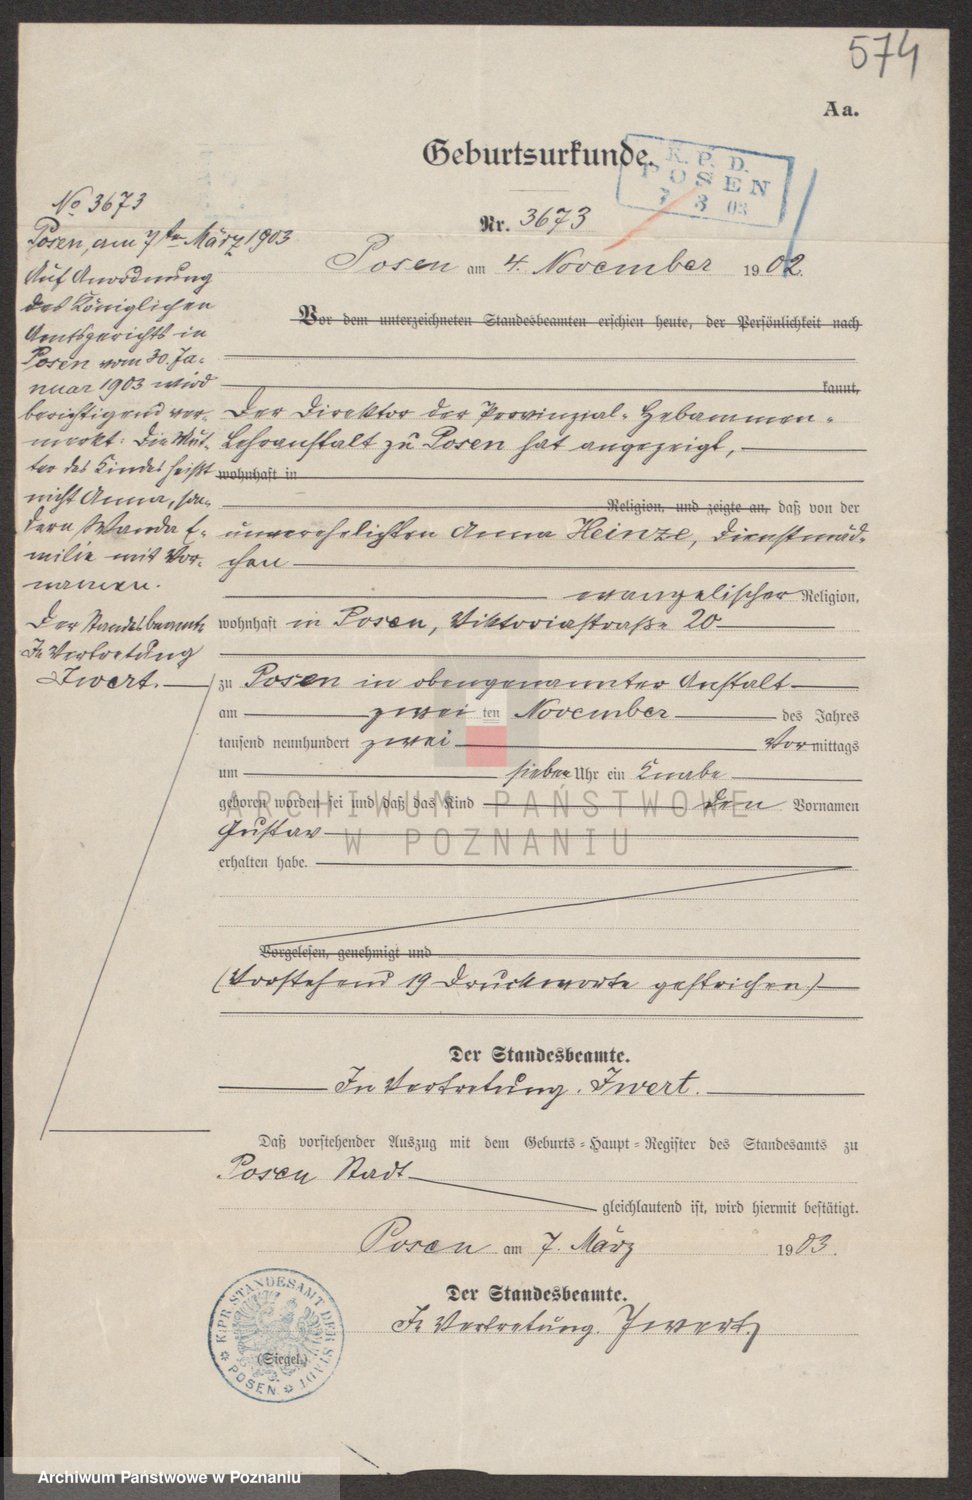 574
Aa.
Geburtsurkunde.
K. P. D.
POSEN
7 3 03
No 3673
Posen, am 7ten März 1903
Auf Anordnung
des Königlichen
Amtsgerichts in
Posen vom 30. Ja-
nuar 1903 wird
berichtigend ver-
merkt: Die Mut-
ter des Kindes heißt
nicht Anna, son-
dern Wanda E-
milie mit Vor-
namen.
Der Standesbeamte
In Vertretung
Iwert.
Nr. 3673
Posen am 4. November 1902.
Vor dem unterzeichneten Standesbeamten erschien heute, der Persönlichkeit nach
kannt,
Der Direktor der Provinzial-Hebammen-
Lehranstalt zu Posen hat angezeigt,
wohnhaft in
Religion, und zeigte an, daß von der
unverehelichten Anna Heinze, Dienstmäd-
chen
evangelischer Religion,
wohnhaft in Posen, Viktoriastraße 20
zu Posen in obengenannter Anstalt
am zwei ten November des Jahres
tausend neunhundert zwei Vormittags
um sieben Uhr ein Knabe
geboren worden sei und daß das Kind den Vornamen
Gustav
erhalten habe.
Vorgelesen, genehmigt und
(Vorstehend 19 Druckworte gestrichen.)
Der Standesbeamte.
In Vertretung. Iwert.
Daß vorstehender Auszug mit dem Geburts-Haupt-Register des Standesamts zu
Posen Stadt
gleichlautend ist, wird hiermit bestätigt.
Posen am 7. März 1903.
Der Standesbeamte.
In Vertretung. Iwert
K. PR. STANDESAMT DER STADT
POSEN
(Siegel.)
ARCHIWUM PAŃSTWOWE
W POZNANIU
Archiwum Państwowe w Poznaniu